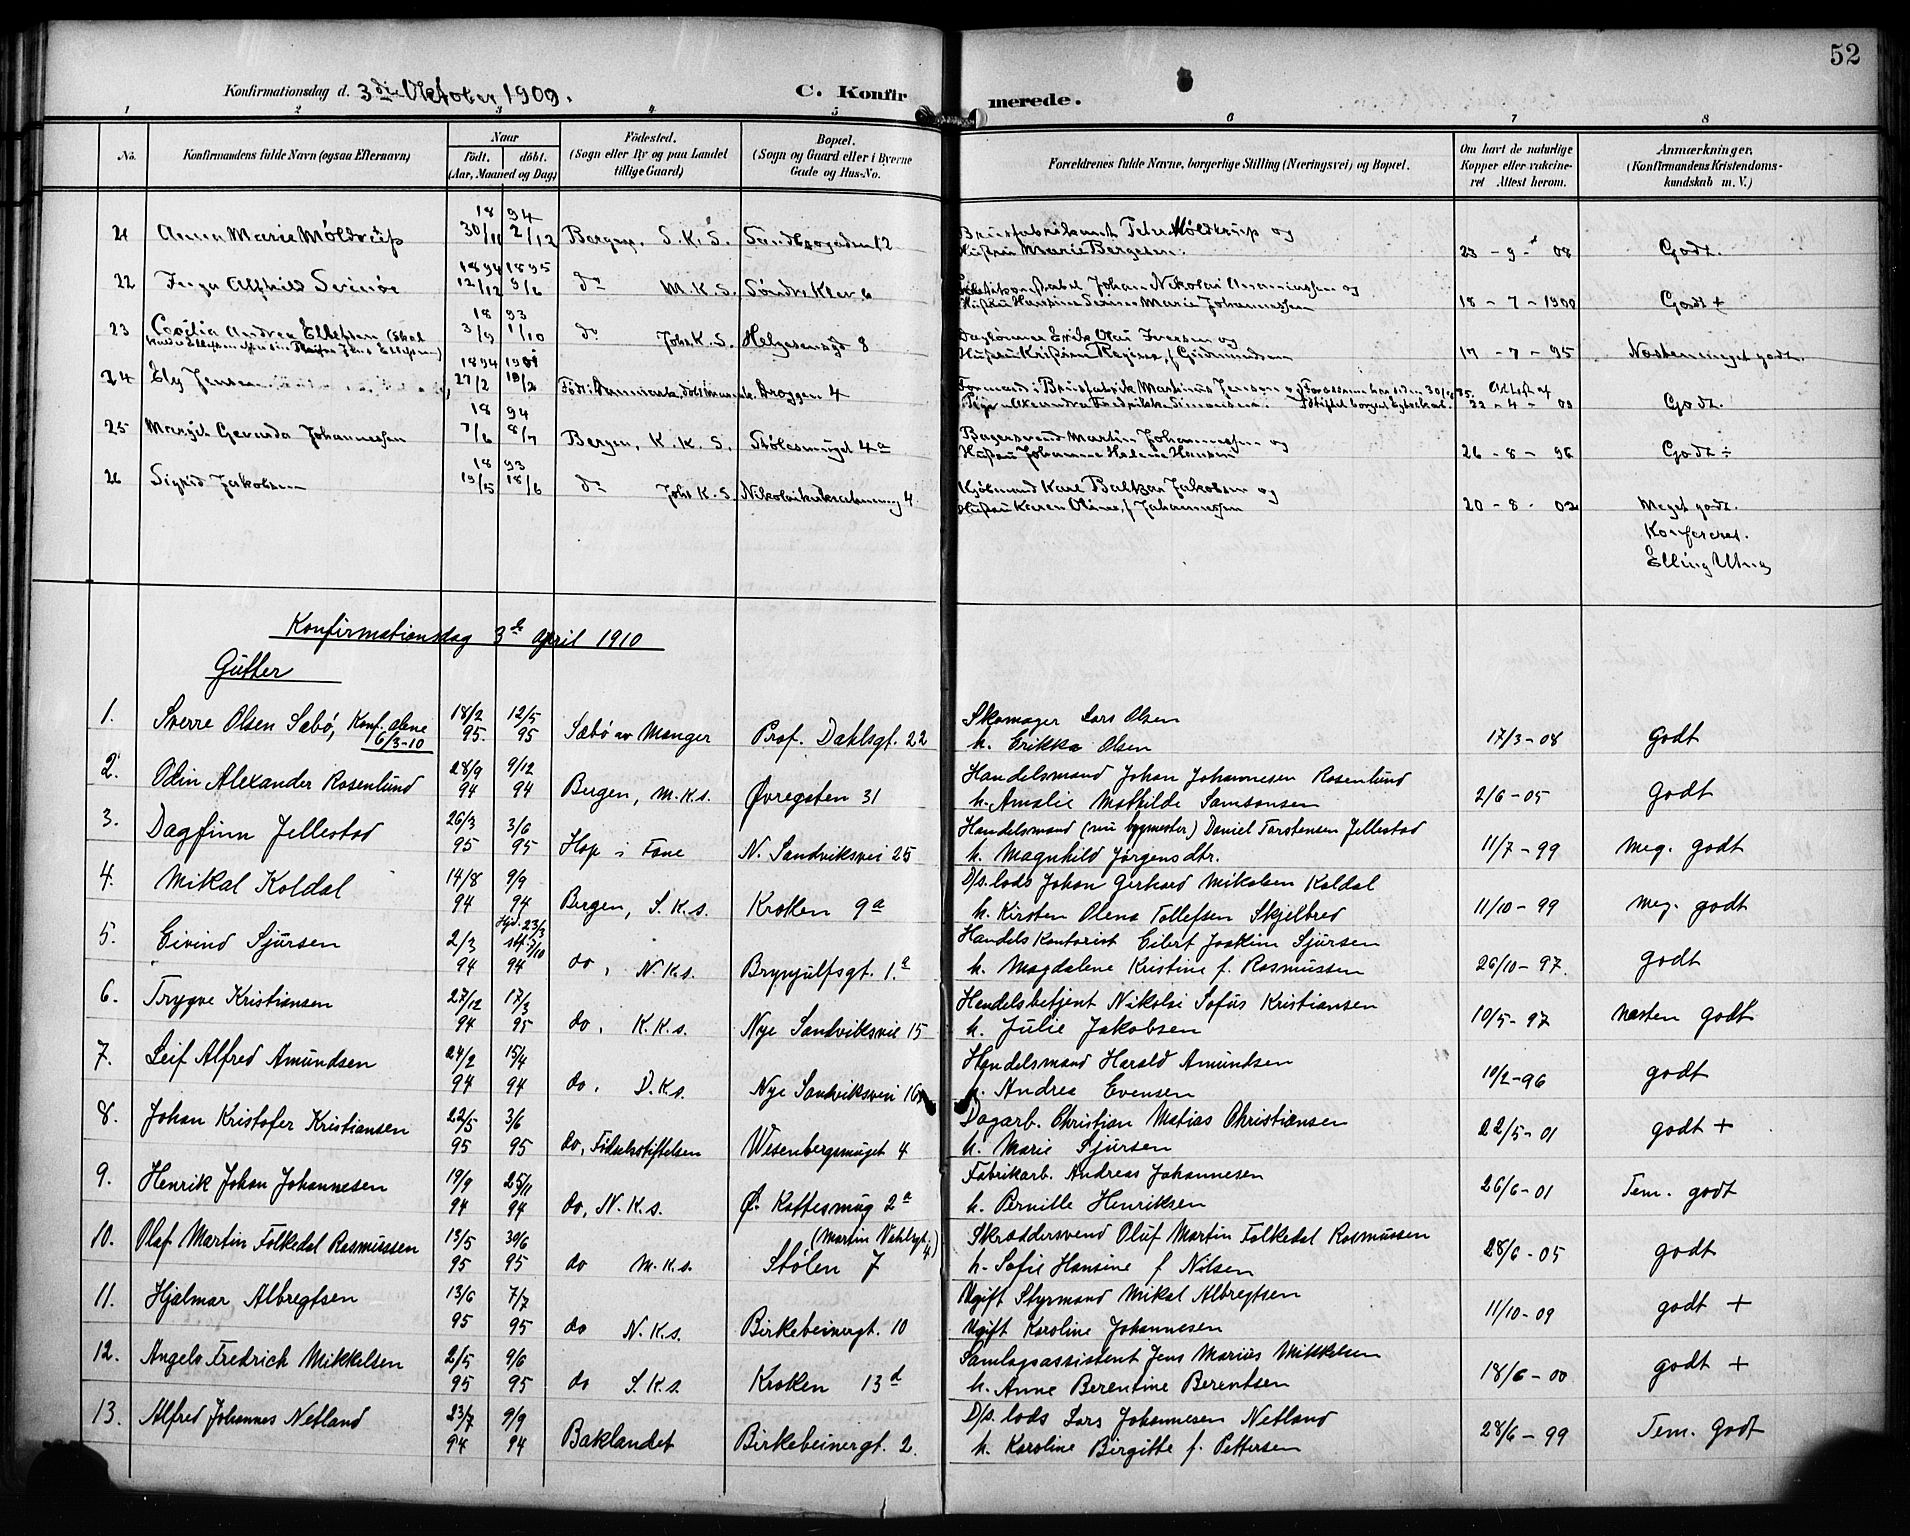 52
Konfirmationsdag d. 3die Oktober 1909.
C. Konfirmerede.
1 2 3 4 5 6 7 8
No. Konfirmandens fulde Navn (ogsaa Efternavn) Naar födt. döbt. (Aar, Maaned og Dag) Födested. (Sogn eller By og paa Landet tillige Gaard) Bopæl. (Sogn og Gaard eller i Byerne Gade og Hus-No. Forældrenes fulde Navne, borgerlige Stilling (Næringsvei) og Bopæl. Om havt de naturlige Kopper eller vakcineret Attest herom. Anmærkninger. (Konfirmandens Kristendomskundskab m. V.)
18 94
21 Anna Marie Möldrup 30/11 2/12 Bergen, S. K. S. Sandbrogaden 12 Brusfabrikant Peter Möldrup og
Hustru Marie Bergesen. 23 - 9 - 08 Godt.
1894 1895
22 Inga Alfhild 12/12 9/6 do M. K. S. Söndre Klev 6 Johan Nikolai og
Hustru Hansine Marie Johannessen 18 - 7 - 1900 Godt +
18 93
23 Cecilia Andrea Ellefsen 3/9 1/10 do Joh. K. S. Helgesensgd 8 Daglönner Erik Olai Iversen og
Hustru 17 - 7 - 95 Næsten meget godt.
1894
24 Ely Jensen 27/2 Födt i Danmark Bryggen 4 Formand i Brusfabrik Martinus Jensen
Alexandra Fredrikke Simonsen. 22 - 4 - 09 Godt.
18 94
25 Margit Gerarda Johannessen 7/6 8/7 Bergen, K. K. S. Stölesmuget 4a Bagersvend Martin Johannessen og
Hustru Johanne Helene Hansen 26 - 8 - 96 Godt ÷
18 93
26 Sigrid Jakobsen 19/5 18/6 do Joh. K. S. Nikolaikirkealmening 4 Kjöbmand Karl Baltzar Jakobsen og
Hustru Karen Oline f. Johannessen 20 - 8 - 02 Meget godt.
Konfereret.
Elling Utne
Konfirmationsdag 3de April 1910
Gutter
1. Sverre Olsen Sæbö, Konf. alene 6/3-10 18/2 95. 12/5 95 Sæbö av Manger Prof. Dahlsgt. 22 Skomager Lars Olsen
h. Erikka Olsen 17/3 - 08 Godt
2. Odin Alexander Rosenlund 28/9 94 9/12 94 Bergen, M. K. s. Øvregaten 31 Handelsmand Johan Johannesen Rosenlund
h. Amalie Mathilde Samsonsen 2/6 - 05 Godt
3. Dagfinn Jellestad 26/3 95 3/6 95 Hop i Fane N. Sandviksvei 25 Handelsmand (nu bygmester) Daniel Torstensen Jellestad
h. Magnhild Jörgensdtr. 11/7 - 99 Meg. godt
4. Mikal Koldal 14/8 94 9/9 94 Bergen, S. K. s. Kroken 9a D/s. lods Johan Gerhard Mikalsen Koldal
h. Kirsten Olena Tollefsen Skjelbred 11/10 - 99 Meg. godt
5. Eivind Sjursen 2/3 94 Hjd. 23/3 stf. 5/10 94 do, N. K. s. Brynjulfsgt. 1a Handelskontorist Eilert Joakim Sjursen
h. Magdalene Kristine f. Rasmussen 26/10 - 97. Godt
6. Trygve Kristiansen 27/12 94 17/3 95 do, K. K. s. Nye Sandviksvei 15 Handelsbetjent Nikolai Sofus Kristiansen
h. Julie Jakobsen 10/5 - 97 Næsten godt
7. Leif Alfred Amundsen 24/2 94 15/4 94 do. D. K. s. Nye Sandviksvei 16 Handelsmand Harald Amundsen
h. Andrea Evensen 10/2 - 96 godt
8. Johan Kristofer Kristiansen 22/5 95 3/6 95 do, Fødselsstiftelsen Wesenbergsmuget 4 Dagarb. Christian Matias Christiansen
h. Marie Sjursen 22/5 - 01 godt +
9. Henrik Johan Johannesen 19/9 94 25/11 94 do, N. K. s. Ø. Kattesmug 2a Fabrikarb. Andreas Johannesen
h. Pernille Henriksen 26/6 - 01 Tem. godt
10. Olaf Martin Folkedal Rasmussen 13/5 95 30/6 95 do M. K. s. (Martin Vahlsgt. 4) Stølen 7 Skræddersvend Oluf Martin Folkedal Rasmussen
h. Sofie Hansine f Nilsen 28/6 - 05 godt
11. Hjalmar Albregtsen 13/6 95 7/7 95 do N. K. s. Birkebeinergt. 10 Ugift Styrmand Mikal Albregtsen
Ugift Karoline Johannesen 11/10 - 09 godt +
12. Angelo Fredrich Mikkelsen 2/5 95 9/6 95 do S. K. s. Kroken 13d Samlagsassistent Jens Marius Mikkelsen
h. Anne Berentine Berentsen 18/6 - 00 godt +
13. Alfred Johannes Netland 23/7 94 9/9 94 Baklandet Birkebeinergt. 2. D/s. lods Lars Johannesen Netland
h. Karoline Birgitte f. Pettersen 28/6 - 99 Tem. godt